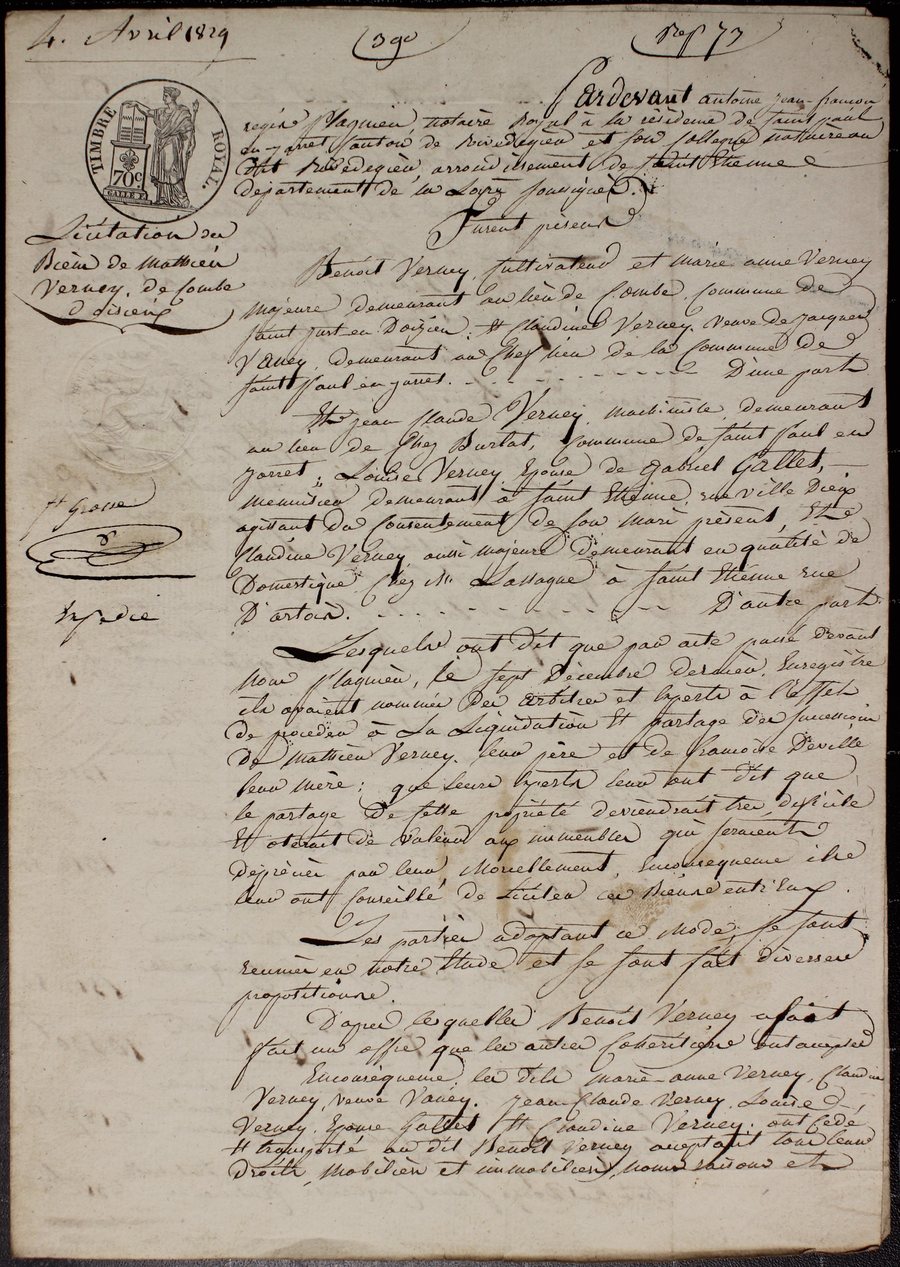 4. Avril 1829
390
rep 73
TIMBRE ROYAL.
70c
Pardevant antoine jean-francois
regis plagnieu notaire Royal à la résidence de saint paul
en-jarret canton de Rivedegier et son Collegue notaire au
dit Rivedegier, arrondissement de saint Etienne
departement de la Loire soussignés.
Licitation des
Biens de Mathieu
Verney, de Combe
d oisieux
Furent présens
Benoit Verney, cultivateur et marie anne Verney
majeure demeurant au lieu de Combe, commune de
saint just en Doizieu; Et Claudine Verney, veuve de jacques
Vaney, demeurant au Chef lieu de la Commune de
saint Paul en jarret. D'une part
Et jean Claude Verney, machiniste, demeurant
au lieu de Chez Burlat, Commune de saint Paul en
jarret, Louise Verney, Epouse de gabriel Gallet,
menuisier demeurant à saint Etienne, rue ville Dieu
agissant du Consentement de son mari présent, Et
Claudine Verney, aussi majeure demeurant en qualité de
Domestique chez Mr Lassagne à saint Etienne rue
D'artois. D'autre part.
f.t Grosse
Expedié
Lesquels ont dit que par acte passé devant
nous plagnieu, le sept Décembre dernier, Enregistré
ils avaient nommés des arbitres et Experts à l'effet
de proceder à La Liquidation Et partage des successions
de Mathieu Verney, leur père et de francoise Deville
leur mère; que leurs Experts leur ont dit que
le partage De cette propriété deviendrait très difficile
Et oterait de valeur aux immeubles qui seraient
Dépréciés par leur Morcellement, Enconsequence ils
leur ont Conseillé de Liciter ces Biens entr'Eux.
Les parties adoptant ce Mode, se sont
reunies en notre Etude et se sont fait diverses
propositions.
D'apres lesquelles Benoit Verney a fait
fait un offre que les autres Coheritiers ont accepté
Enconséquence les dits marie-anne Verney, Claudine
Verney, veuve Vaney, Jean-Claude Verney, Louise
Verney, Epouse Gallet Et Claudine Verney, ont cédé
Et transporté au dit Benoit Verney acceptant tous leurs
droits, mobiliers et immobiliers, noms raisons et